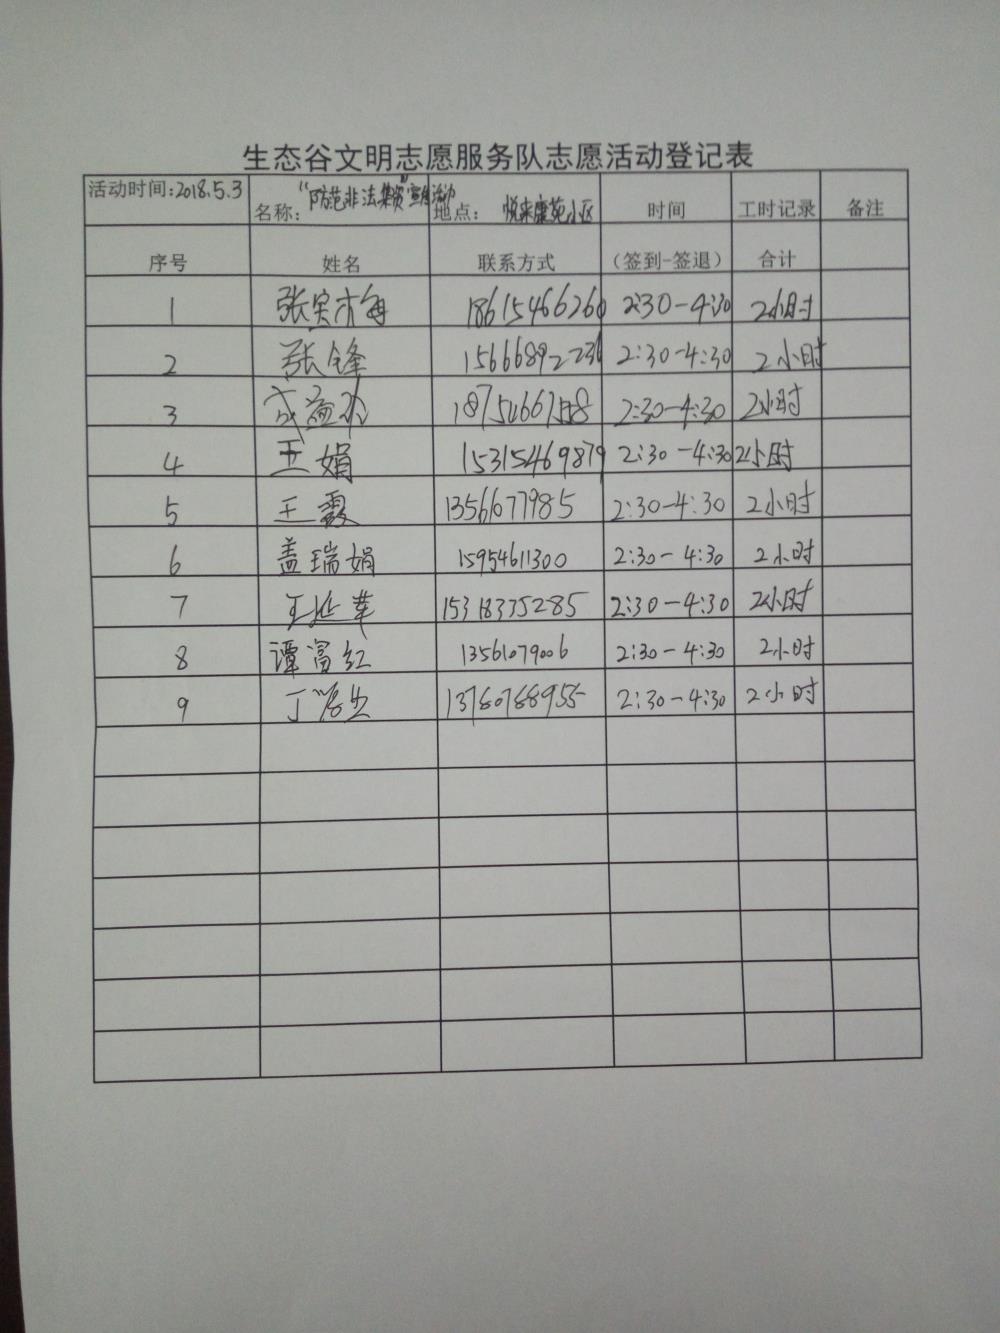 生态谷文明志愿服务队志愿活动登记表
活动时间:2018.5.3 名称:"防范非法集资"宣传活动 地点: 悦来康苑小区 时间 工时记录 备注
序号 姓名 联系方式 (签到-签退) 合计
1 张实梅 18615466260 2:30-4:30 2小时
2 张锋 2:30-4:30 2小时
3 2:30-4:30 2小时
4 王娟 15315469879 2:30-4:30 2小时
5 王霞 1356677985 2:30-4:30 2小时
6 盖瑞娟 15954611300 2:30-4:30 2小时
7 王延苹 15318375285 2:30-4:30 2小时
8 谭富红 13561079006 2:30-4:30 2小时
9 丁 13760768955 2:30-4:30 2小时